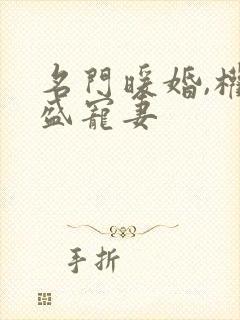 名門暖婚,權
盛寵妻
手折